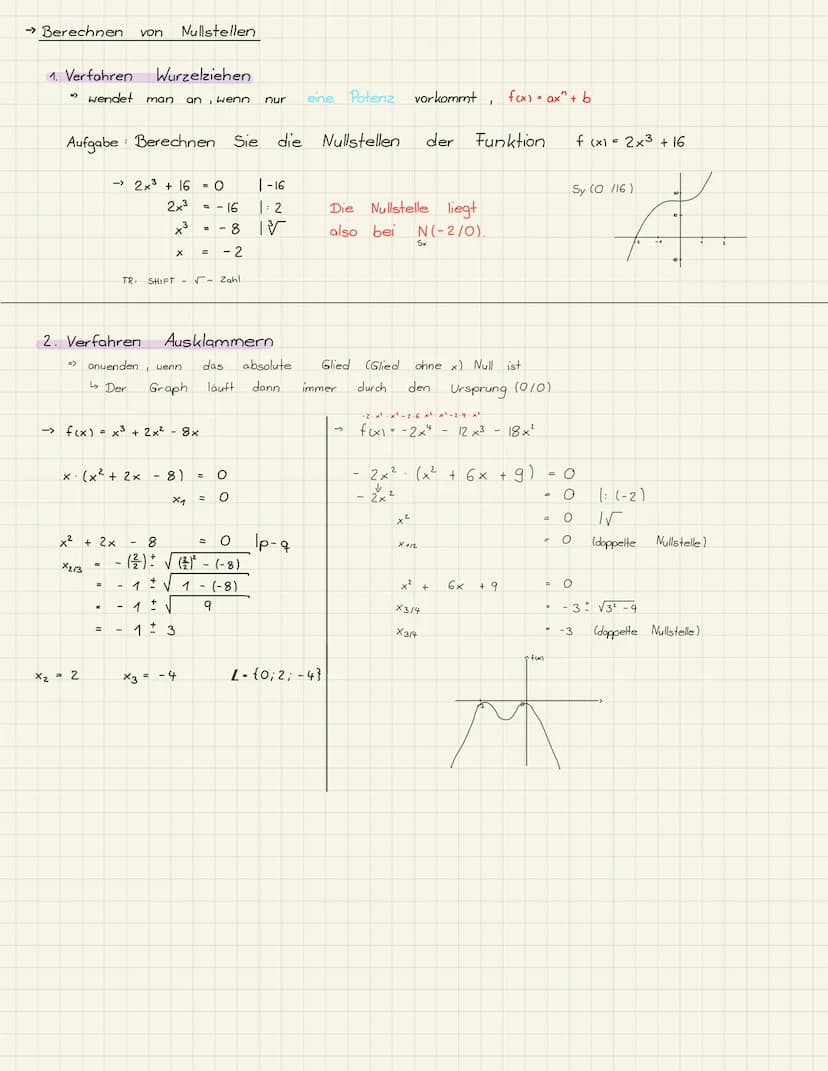 → Berechnen von Nullstellen
1. Verfahren Wurzelziehen
⇒ wendet man an, wenn nur eine Potenz vorkommt, f(x) = axⁿ + b
Aufgabe: Berechnen Sie die Nullstellen der Funktion f(x) = 2x³ + 16
→ 2x³ + 16 = 0 | -16
2x³ = -16 | : 2
x³ = -8 | ∛
x = -2
TR: SHIFT - √ - Zahl
Die Nullstelle liegt
also bei N(-2/0).
Sx
Sy (0 /16)
2. Verfahren Ausklammern
⇒ anwenden, wenn das absolute Glied (Glied ohne x) Null ist
↳ Der Graph läuft dann immer durch den Ursprung (0/0)
→ f(x) = x³ + 2x² - 8x
x · (x² + 2x - 8) = 0
x₁ = 0
x² + 2x - 8 = 0 | p-q
x₂/₃ = -(2/2) ± √((2/2)² - (-8))
= - 1 ± √(1 - (-8))
= - 1 ± √9
= - 1 ± 3
x₂ = 2 x₃ = -4 L = {0; 2; -4}
-2·x²·x²-2·6·x²·x-2·9·x²
→ f(x) = -2x⁴ - 12x³ - 18x²
- 2x² · (x² + 6x + 9) = 0
↓
- 2x² = 0 | : (-2)
x² = 0 | √
x₁/₂ = 0 (doppelte Nullstelle)
x² + 6x + 9 = 0
x₃/₄ = -3 ± √(3² - 9)
x₃/₄ = -3 (doppelte Nullstelle)
f(x)